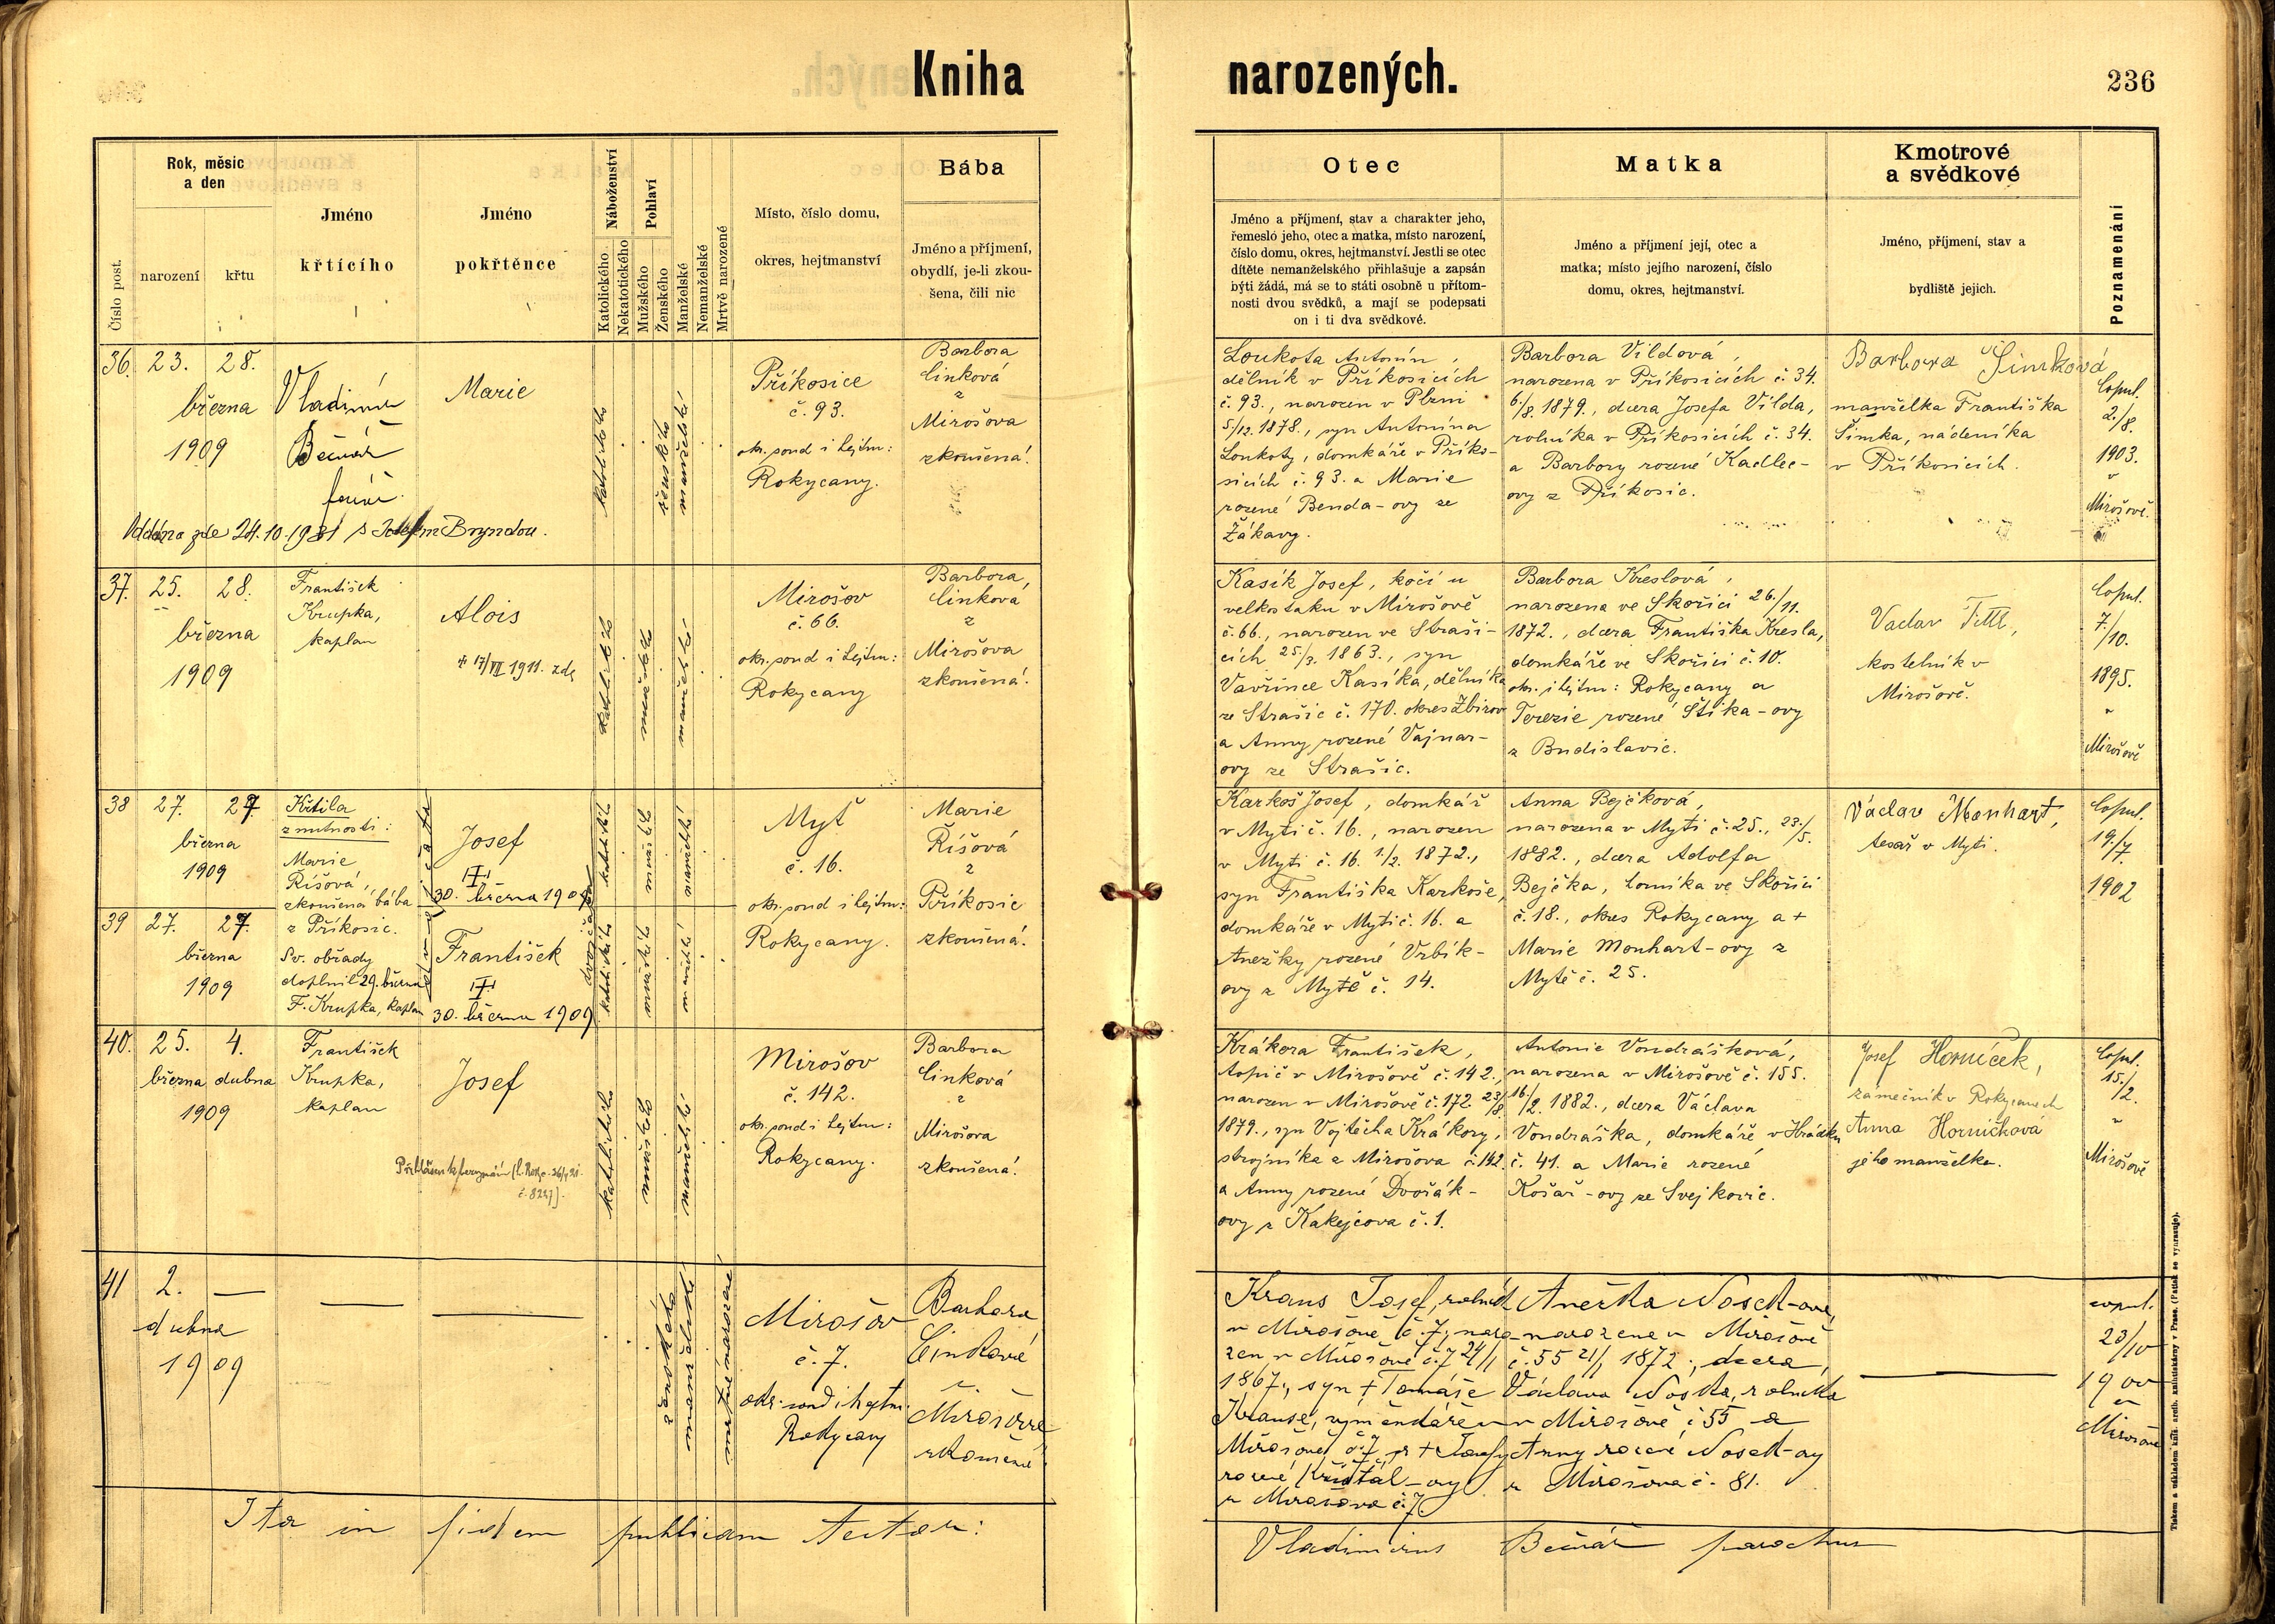 Kniha
narozených.
236
Číslo post.
Rok, měsíc
a den
narození
křtu
Jméno
křtícího
Jméno
pokřtěnce
Náboženství
Katolického
Nekatotického
Pohlaví
Mužského
Ženského
Manželské
Nemanželské
Mrtvě narozené
Místo, číslo domu,
okres, hejtmanství
Bába
Jméno a příjmení,
obydlí, je-li zkou-
šena, čili nic
Otec
Jméno a příjmení, stav a charakter jeho,
řemeslo jeho, otec a matka, místo narození,
číslo domu, okres, hejtmanství. Jestli se otec
dítěte nemanželského přihlašuje a zapsán
býti žádá, má se to státi osobně u přítom-
nosti dvou svědků, a mají se podepsati
on i ti dva svědkové.
Matka
Jméno a příjmení její, otec a
matka; místo jejího narození, číslo
domu, okres, hejtmanství.
Kmotrové
a svědkové
Jméno, příjmení, stav a
bydliště jejich.
Poznamenání
36. 23. 28.
března
1909
Vladimír
Bečvář
farář.
Marie
katolického
ženského
manželské
Příkosice
č. 93.
okr. soud i hejtm:
Rokycany.
Barbora
Cinková
z
Mirošova
zkoušená.
Oddána zde 24.10.1931 s Josefem Bryndou.
Loukota Antonín,
dělník v Příkosicích
č. 93., narozen v Plzni
5/12. 1878., syn Antonína
Loukoty, domkáře v Příko-
sicích č. 93. a Marie
rozené Benda-ovy ze
Žákavy.
Barbora Vildová,
narozena v Příkosicích č. 34.
6/8. 1879., dcera Josefa Vilda,
rolníka v Příkosicích č. 34.
a Barbory rozené Kadlec-
ovy z Příkosic.
Barbora Šimková
manželka Františka
Šimka, nádeníka
v Příkosicích.
Copul.
2./8.
1903.
v
Mirošově.
37. 25. 28.
března
1909
František
Krupka,
kaplan
Alois
+ 17/VII 1911. zde
katolického
mužského
manželské
Mirošov
č. 66.
okr. soud i hejtm:
Rokycany
Barbora,
Cinková
z
Mirošova
zkoušená.
Kasík Josef, kočí u
velkostaku v Mirošově
č. 66., narozen ve Straši-
cích 25/3. 1863., syn
Vavřince Kasíka, dělníka
ze Strašic č. 170. okres Zbirov
a Anny rozené Vajnar-
ovy ze Strašic.
Barbora Kreslová,
narozena ve Skořici 26./11.
1872., dcera Františka Kresla,
domkáře ve Skořici č. 10.
okr. i hejtm: Rokycany a
Terezie rozené Štika-ovy
z Budislavic.
Vaclav Tittl,
kostelník v
Mirošově.
Copul.
7./10.
1895.
v
Mirošově
38 27. 27.
března
1909
Křtila
z nutnosti:
Marie
Říšová,
zkoušená bába
z Příkosic.
Josef
30. března 1909
katolického
mužského
manželské
Myť
č. 16.
okr. soud i hejtm:
Rokycany.
Marie
Říšová
z
Příkosic
zkoušená.
39 27. 27.
března
1909
Sv. obřady
doplnil 29. března
F. Krupka, kaplan
dvojčata
František
30. března 1909
katolického
mužského
manželské
Karkoš Josef, domkář
v Myti č. 16., narozen
v Myti č. 16. 1./2. 1872.,
syn Františka Karkoše,
domkáře v Myti č. 16. a
Anežky rozené Vrbík-
ovy z Mytě č. 14.
Anna Bejčková,
narozena v Myti č. 25., 23./5.
1882., dcera Adolfa
Bejčka, horníka ve Skořici
č. 18., okres Rokycany a +
Marie Monhart-ovy z
Mytě č. 25.
Václav Monhart,
tesař v Myti.
Copul.
19./7.
1902
40. 25. 4.
března dubna
1909
František
Krupka,
kaplan
Josef
katolického
mužského
manželské
Mirošov
č. 142.
okr. soud i hejtm:
Rokycany.
Barbora
Cinková
z
Mirošova
zkoušená.
Krákora František,
topič v Mirošově č. 142.,
narozen v Mirošově č. 172. 23/8.
1879., syn Vojtěcha Krákory,
strojníka z Mirošova č. 142.
a Anny rozené Dvořák-
ovy z Kakejcova č. 1.
Antonie Vondrášková,
narozena v Mirošově č. 155.
16/2. 1882., dcera Václava
Vondráška, domkáře v Hrádku
č. 41. a Marie rozené
Košař-ovy ze Svejkovic.
Josef Horníček,
zámečník v Rokycanech
Anna Horníčková
jeho manželka.
Copul.
15./2.
v
Mirošově
41 2. —
dubna
1909
ženského
manželské
mrtvě narozené
Mirošov
č. 7.
okr. soud i hejtm.
Rokycany
Barbora
Cinková
z
Mirošova
zkoušená
Kraus Josef, rolník
v Mirošově č. 7, naro-
zen v Mirošově č. 7 24/1
1867., syn + Tomáše
Krause, výměnkáře v
Mirošově č. 7 a + Josefy
rozené Křišťál-ovy
z Mirošova č. 7.
Anežka Nosek-ova,
narozena v Mirošově
č. 55 21/1 1872., dcera
Václava Noska, rolníka
v Mirošově č 55 a
Anny rozené Nosek-ovy
z Mirošova č. 81.
copul.
23/10
1900
v
Mirošově
Ita in fidem publicam testor:
Vladimirus Bečvář parochus
Tiskem a nákladem kníž. arcib. knihtiskárny v Praze. (Patisk se vyhrazuje).